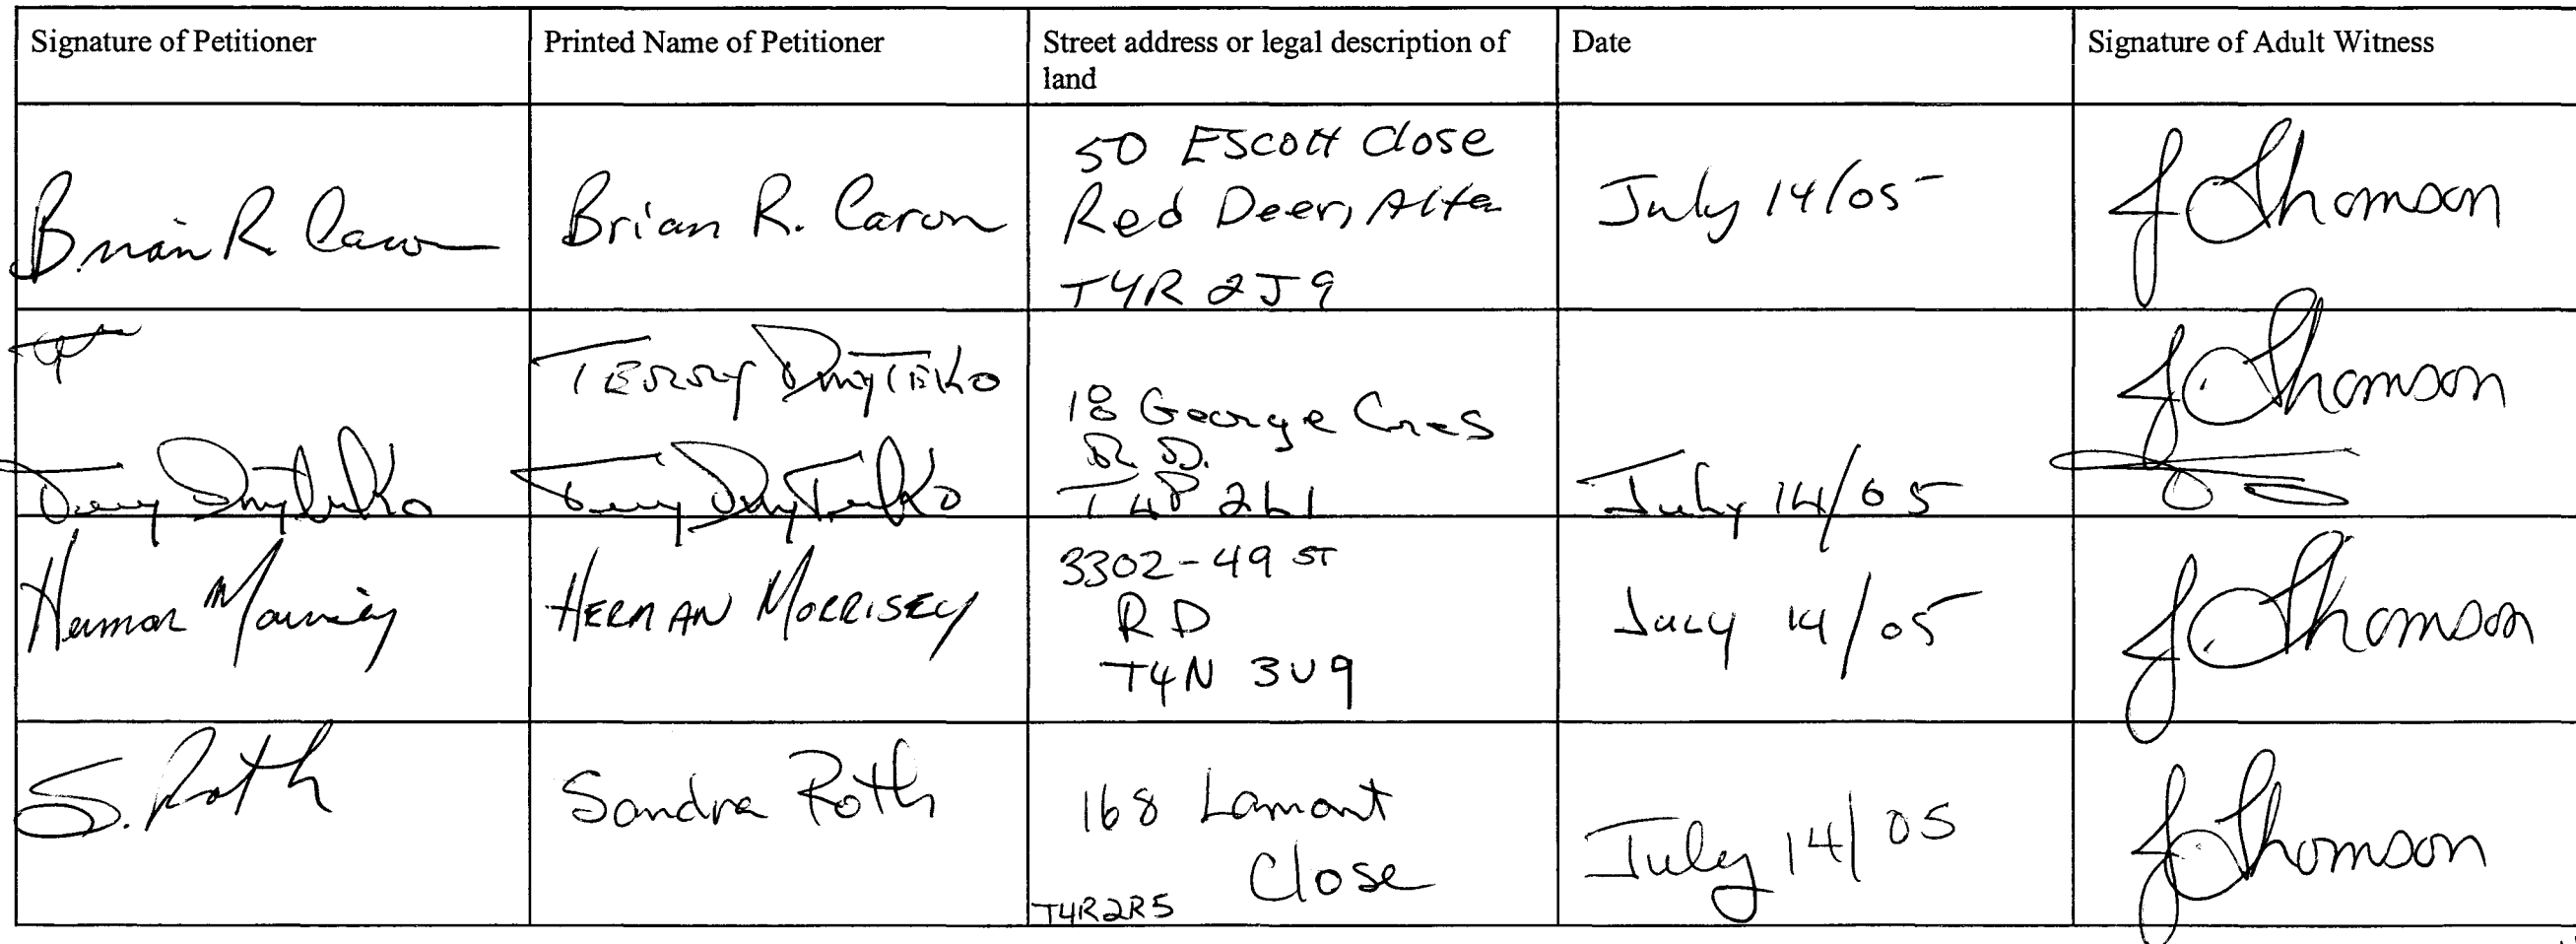 Signature of Petitioner
Printed Name of Petitioner
Street address or legal description of
land
Date
Signature of Adult Witness
Brian R. Caron
Brian R. Caron
50 Escott Close
Red Deer, Alta
T4R 2J9
July 14/05
J Thomson
TERRY
18 George Cres
R.D.
T4P 2L1
Terry
Terry
July 14/05
J Thomson
Herman Morrisey
HERMAN MORRISEY
3302-49 ST
RD
T4N 3V9
July 14/05
J Thomson
S. Roth
Sandra Roth
168 Lamont
Close
T4R2R5
July 14/05
J Thomson